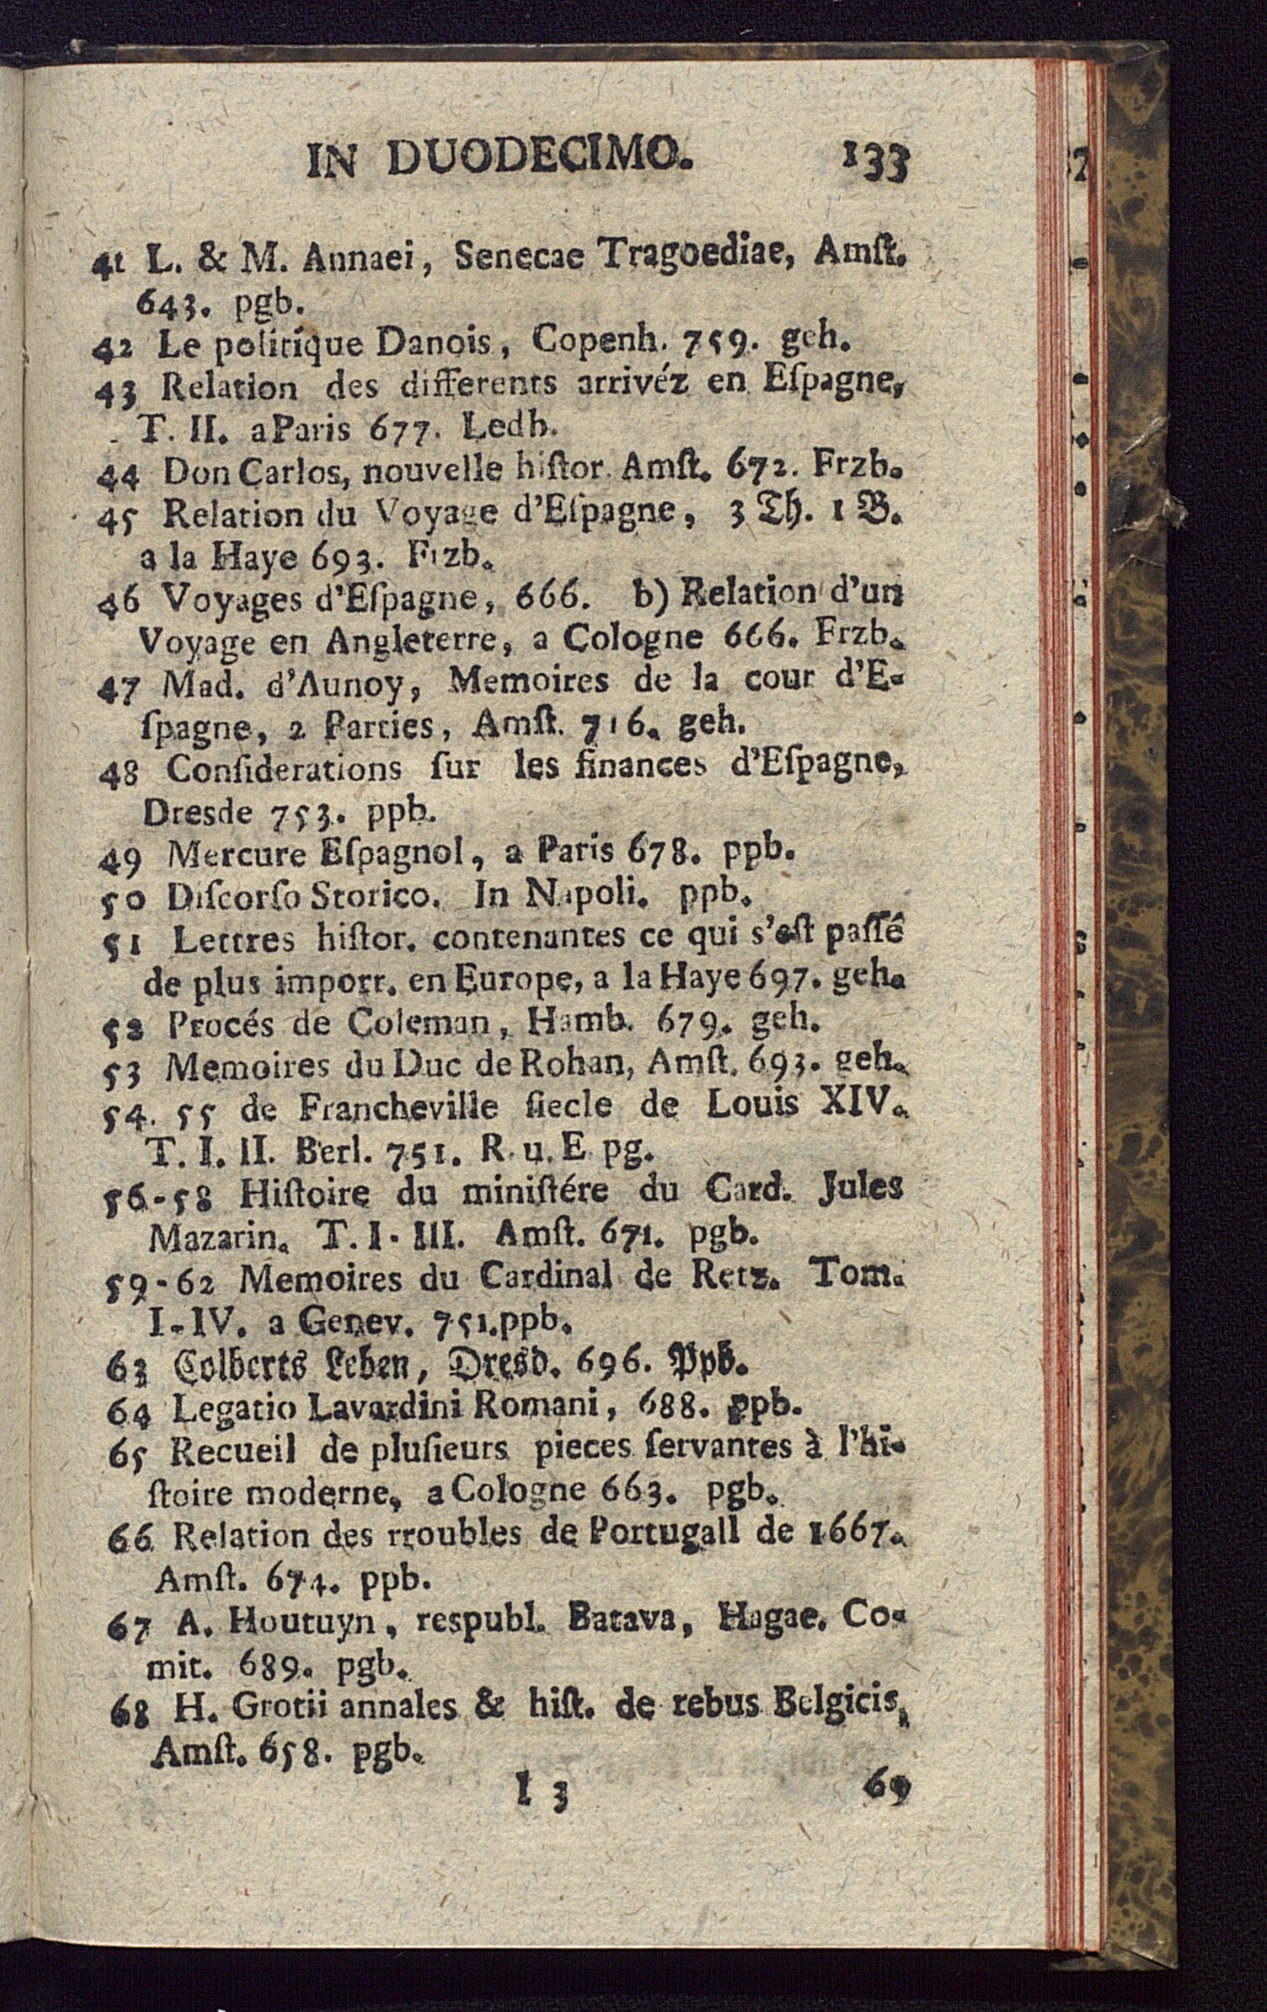 IN DUODECIMO. 133
41 L. & M. Annaei, Senecae Tragoediae, Amſt.
643. pgb.
42 Le politique Danois, Copenh. 759. geh.
43 Relation des differents arrivéz en Eſpagne,
T. II. a Paris 677. Ledb.
44 Don Carlos, nouvelle hiſtor. Amſt. 672. Frzb.
45 Relation du Voyage d'Eſpagne, 3 Th. 1 B.
a la Haye 693. Frzb.
46 Voyages d'Eſpagne, 666. b) Relation d'un
Voyage en Angleterre, a Cologne 666. Frzb.
47 Mad. d'Aunoy, Memoires de la cour d'E-
ſpagne, 2 Parties, Amſt. 716. geh.
48 Conſiderations ſur les finances d'Eſpagne,
Dresde 753. ppb.
49 Mercure Eſpagnol, a Paris 678. ppb.
50 Diſcorſo Storico. In Napoli. ppb.
51 Lettres hiſtor. contenantes ce qui s'eſt paſſé
de plus import. en Europe, a la Haye 697. geh.
52 Procés de Coleman, Hamb. 679. geh.
53 Memoires du Duc de Rohan, Amſt. 693. geh.
54. 55 de Francheville ſiecle de Louis XIV.
T. I. II. Berl. 751. R. u. E. pg.
56-58 Hiſtoire du miniſtére du Card. Jules
Mazarin. T. I-III. Amſt. 671. pgb.
59-62 Memoires du Cardinal de Retz. Tom.
I-IV. a Genev. 751. ppb.
63 Colberts Leben, Dresd. 696. Ppb.
64 Legatio Lavardini Romani, 688. ppb.
65 Recueil de pluſieurs pieces ſervantes à l'hi-
ſtoire moderne, a Cologne 663. pgb.
66 Relation des troubles de Portugall de 1667.
Amſt. 674. ppb.
67 A. Houtuyn, respubl. Batava, Hagae. Co-
mit. 689. pgb.
68 H. Grotii annales & hiſt. de rebus Belgicis,
Amſt. 658. pgb.
I 3 69